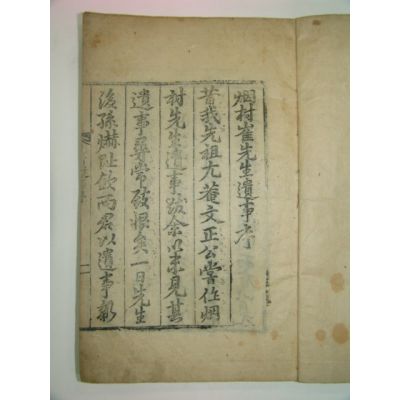 烟村崔先生遺事序
昔我先祖尤菴文正公嘗作烟
村先生遺事跋余以未見其
遺事尋常致恨矣一日先生
後孫爀趾欽兩君以遺事新